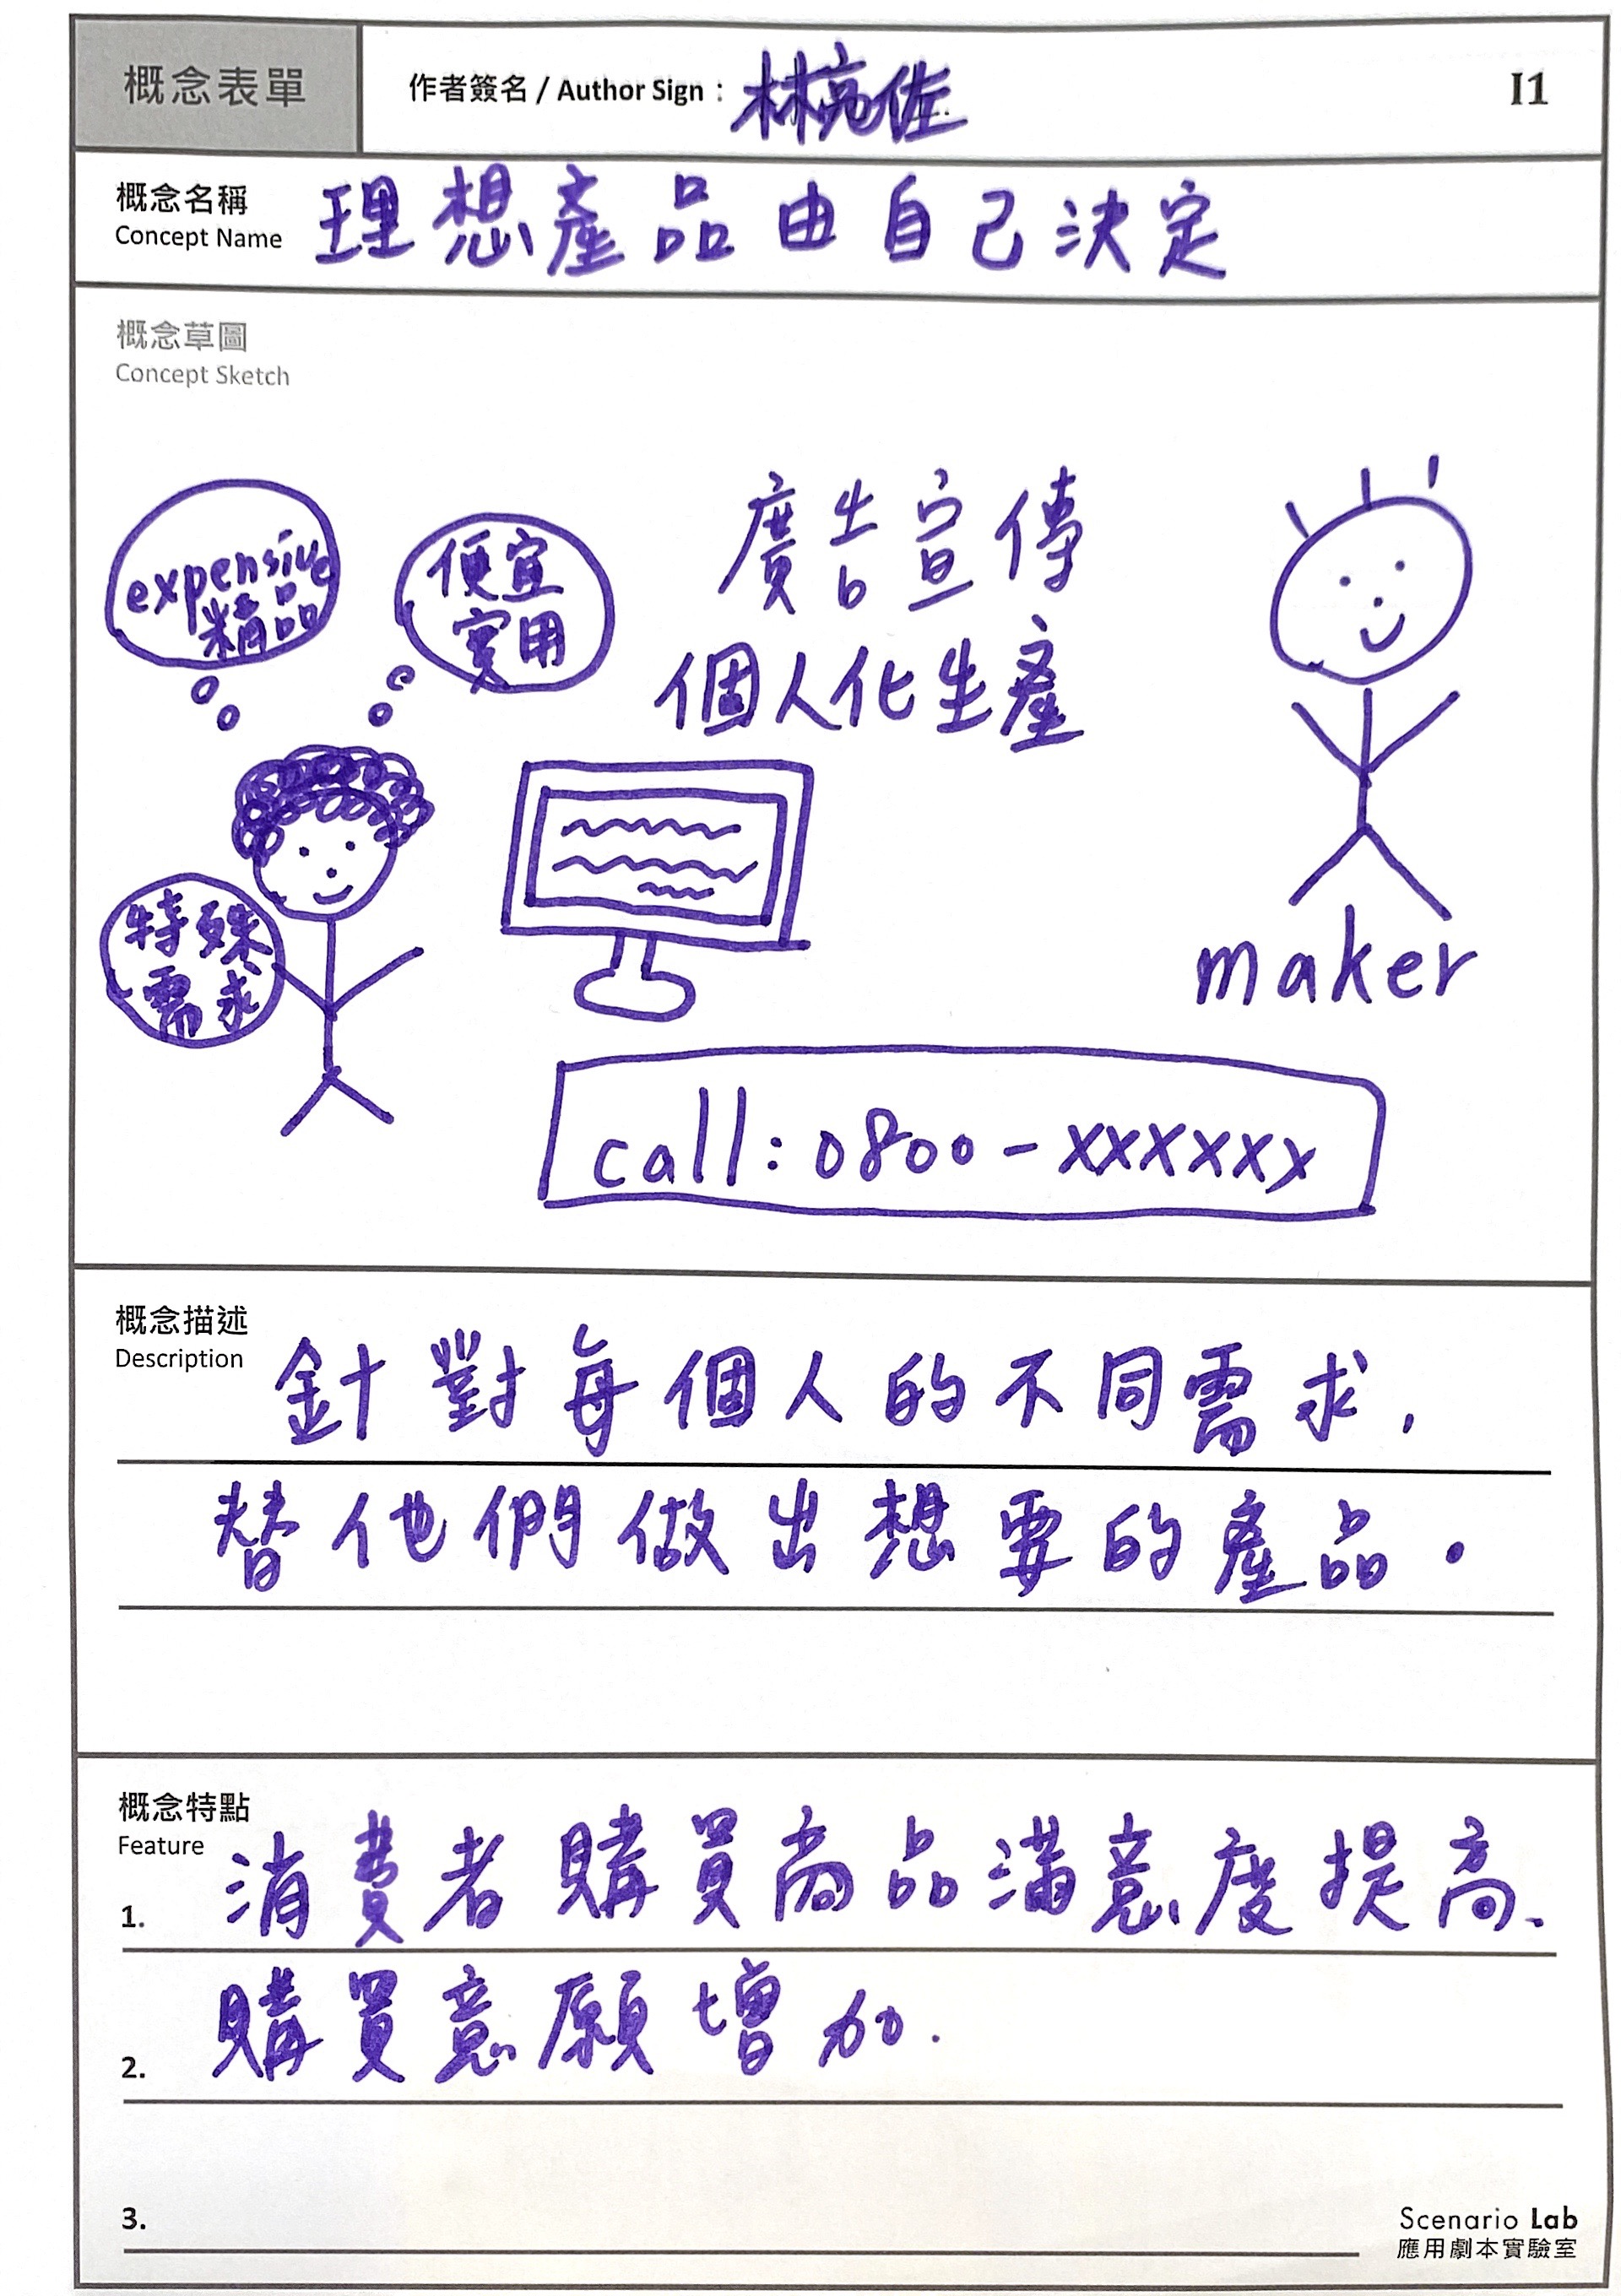 概念表單
作者簽名 / Author Sign : 林亮佐
I1
概念名稱
Concept Name
理想產品由自己決定
概念草圖
Concept Sketch
expensive
精品
便宜
實用
廣告宣傳
個人化生產
特殊
需求
maker
call: 0800-xxxxxx
概念描述
Description
針對每個人的不同需求,
替他們做出想要的產品.
概念特點
Feature
1. 消費者購買商品滿意度提高、
2. 購買意願增加.
3.
Scenario Lab
應用劇本實驗室